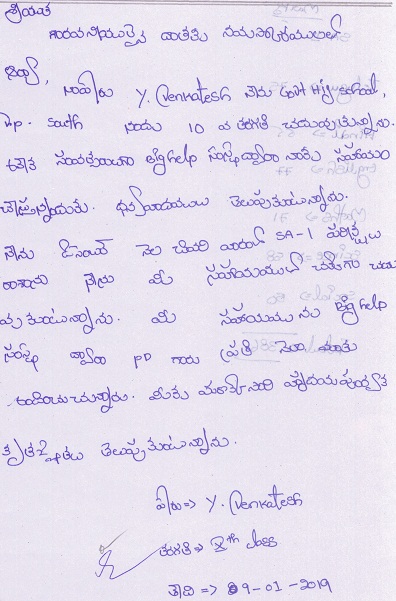 శ్రీయుత
గౌరవనీయులైన దాతకు నమస్కారములతో
అయ్యా,
నాపేరు Y. Venkatesh నేను Govt High school,
నందు 10 వ తరగతి చదువుతున్నాను.
గత సంవత్సరంగా Big help సంస్థ ద్వారా నాకు సహాయం
చేస్తున్నారు. ధన్యవాదములు తెలుపుకుంటున్నాను.
నేను నెల చివరి వారంలో SA-1 పరీక్షలు
రాశాను నేను మీ సహాయముతో చక్కగా చదు
వుకుంటున్నాను. మీ సహాయమును Big help
సంస్థ ద్వారా PD గారు ప్రతి నెలా మాకు
అందించుచున్నారు. మీకు మరొక్కసారి హృదయపూర్వక
కృతజ్ఞతలు తెలుపుకుంటున్నాను.
పేరు => Y. Venkatesh
తరగతి => Xth class
తేది => 09-01-2019